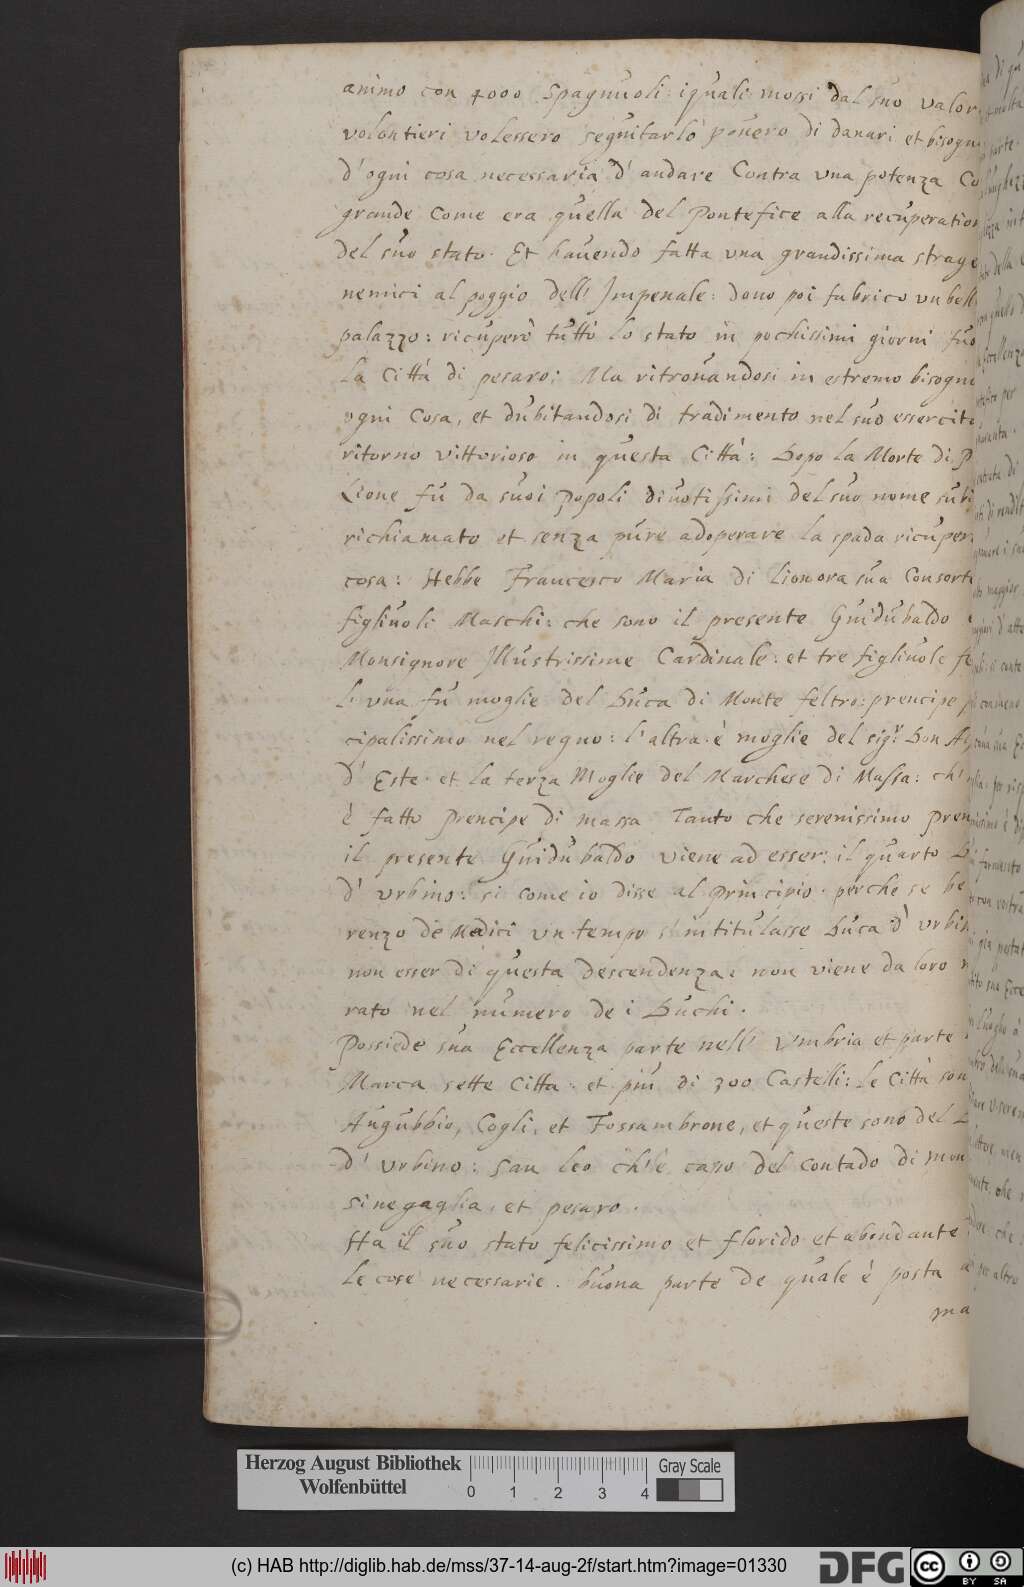 animo con 4000 spagnuoli iquali mossi dal suo valor
volontieri volessero seguitarlo pouero di danari et bisogn
d' ogni cosa necessaria d' andare Contra vna potenza Co
grande Come era quella del Pontefice alla recuperation
del suo stato. Et hauendo fatta vna grandissima strage
nemici al poggio dell' Imperiale: doue poi fabrico vn bell
palazzo: ricuperò tutto lo stato in pochissimi giorni fuo
la Città di pesaro: Ma ritrouandosi in estremo bisogni
ogni Cosa, et dubitandosi di tradimento nel suo essercito
ritorno vittorioso in questa Città: Dopo la Morte di P
Lione fu da suoi popoli diuotissimi del suo nome subi
richiamato et senza pure adoperare la spada ricuper
cosa: Hebbe Francesco Maria di Lionora sua Consorte
figliuoli Maschi: che sono il presente Guidubaldo
Monsignore Illustrissime Cardinale: et tre figliuole fe
l' vna fu moglie del Duca di Monte feltro: prencipe p
cipalissimo nel regno: l' altra è moglie del sigr Don A
d' Este. et la terza Moglie del Marchese di Massa: ch'
è fatto prencipe di massa Tanto che serenissimo pren
il presente Guidubaldo viene ad esser: il quarto D
d' vrbino: si come io disse al principio. perche se be
renzo de Medici vn tempo s' intitulasse Duca d' vrbin
non esser di questa descendenza: non viene da loro n
rato nel numero de i Duchi.
Possiede sua Eccellenza parte nell' Vmbria et parte
Marca sette Citta. et piu di 300 Castelli: le Città son
Augubbio, Cogli, et Fossambrone, et queste sono del D
d' vrbino: San leo ch' è capo del contado di mon
sinegaglia, et pesaro.
Ha il suo stato felicissimo et florido et abondante
le cose necessarie. buona parte de quale è posta a
ma
Herzog August Bibliothek
Wolfenbüttel
0 1 2 3 4
Gray Scale
(c) HAB http://diglib.hab.de/mss/37-14-aug-2f/start.htm?image=01330
DFG
cc BY SA